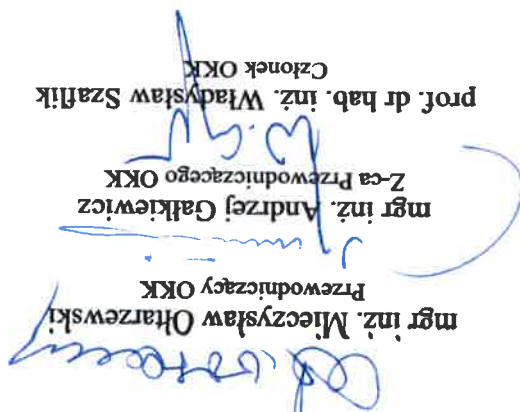 mgr inż. Mieczysław Ołtarzewski
Przewodniczący OKK
mgr inż. Andrzej Gałkiewicz
Z-ca Przewodniczącego OKK
prof. dr hab. inż. Władysław Szaflik
Członek OKK